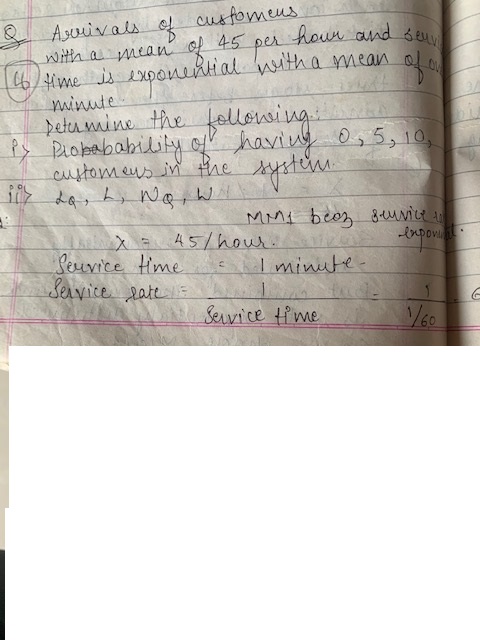 Q Arrivals of customers
with a mean of 45 per hour and
4 time is exponential with a mean of
minute.
Determine the following:
i> Probability of having 0, 5, 10,
customers in the system.
ii> LQ, L, WQ, W
MM1 becoz service
exponential.
λ = 45/hour.
Service time = 1 minute-
Service rate = 1 / Service time = 1 / 1/60